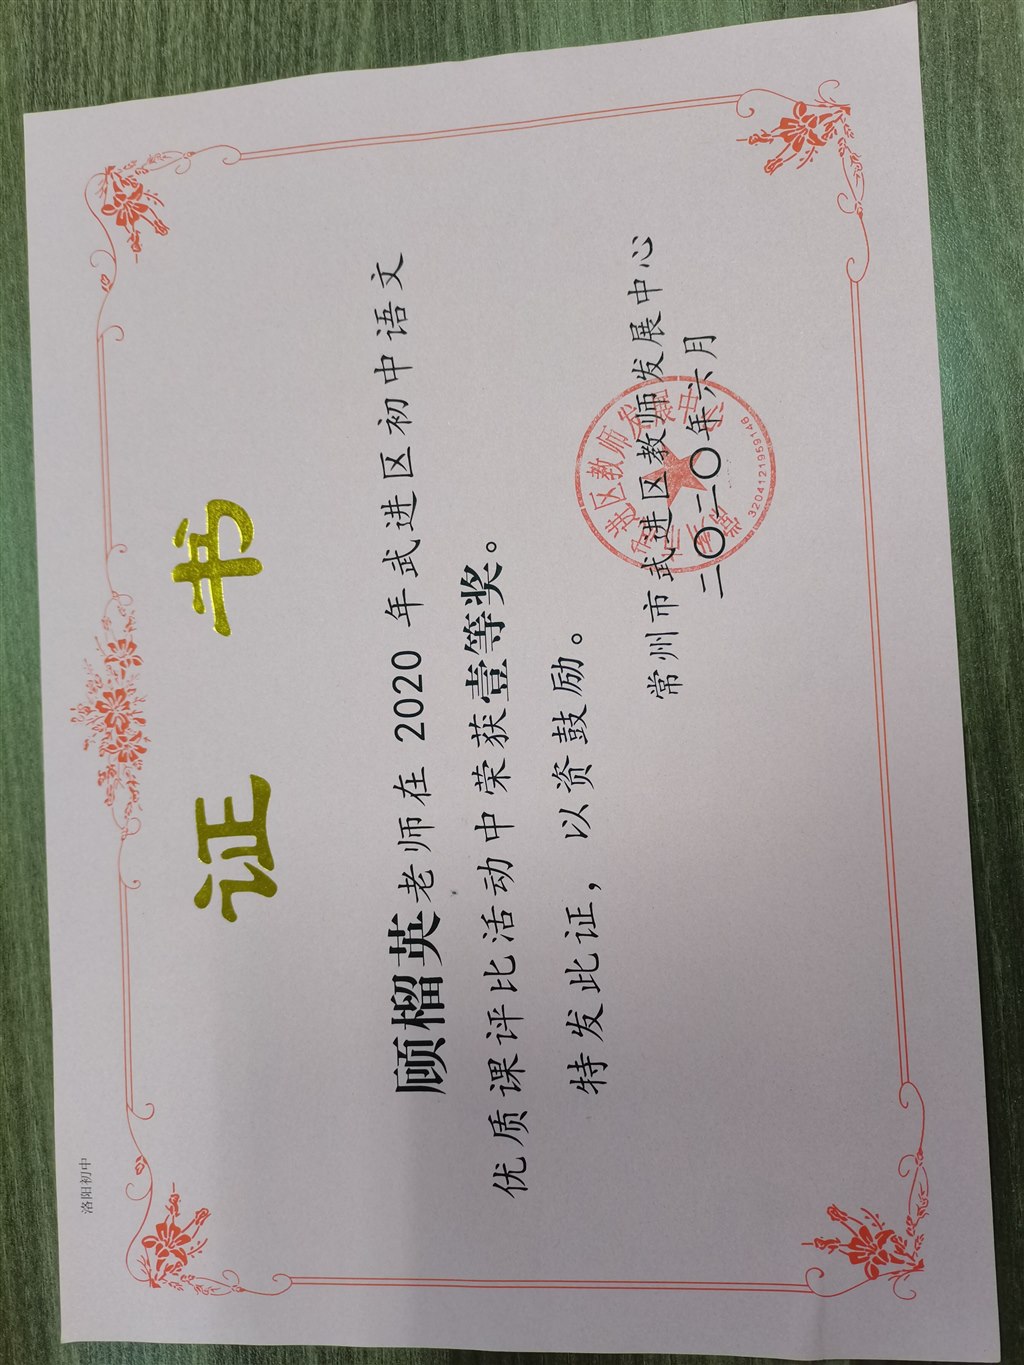 洛阳初中
证书
顾榴英老师在 2020 年武进区初中语文
优质课评比活动中荣获壹等奖。
特发此证，以资鼓励。
常州市武进区教师发展中心
二〇二〇年六月
3204121959146